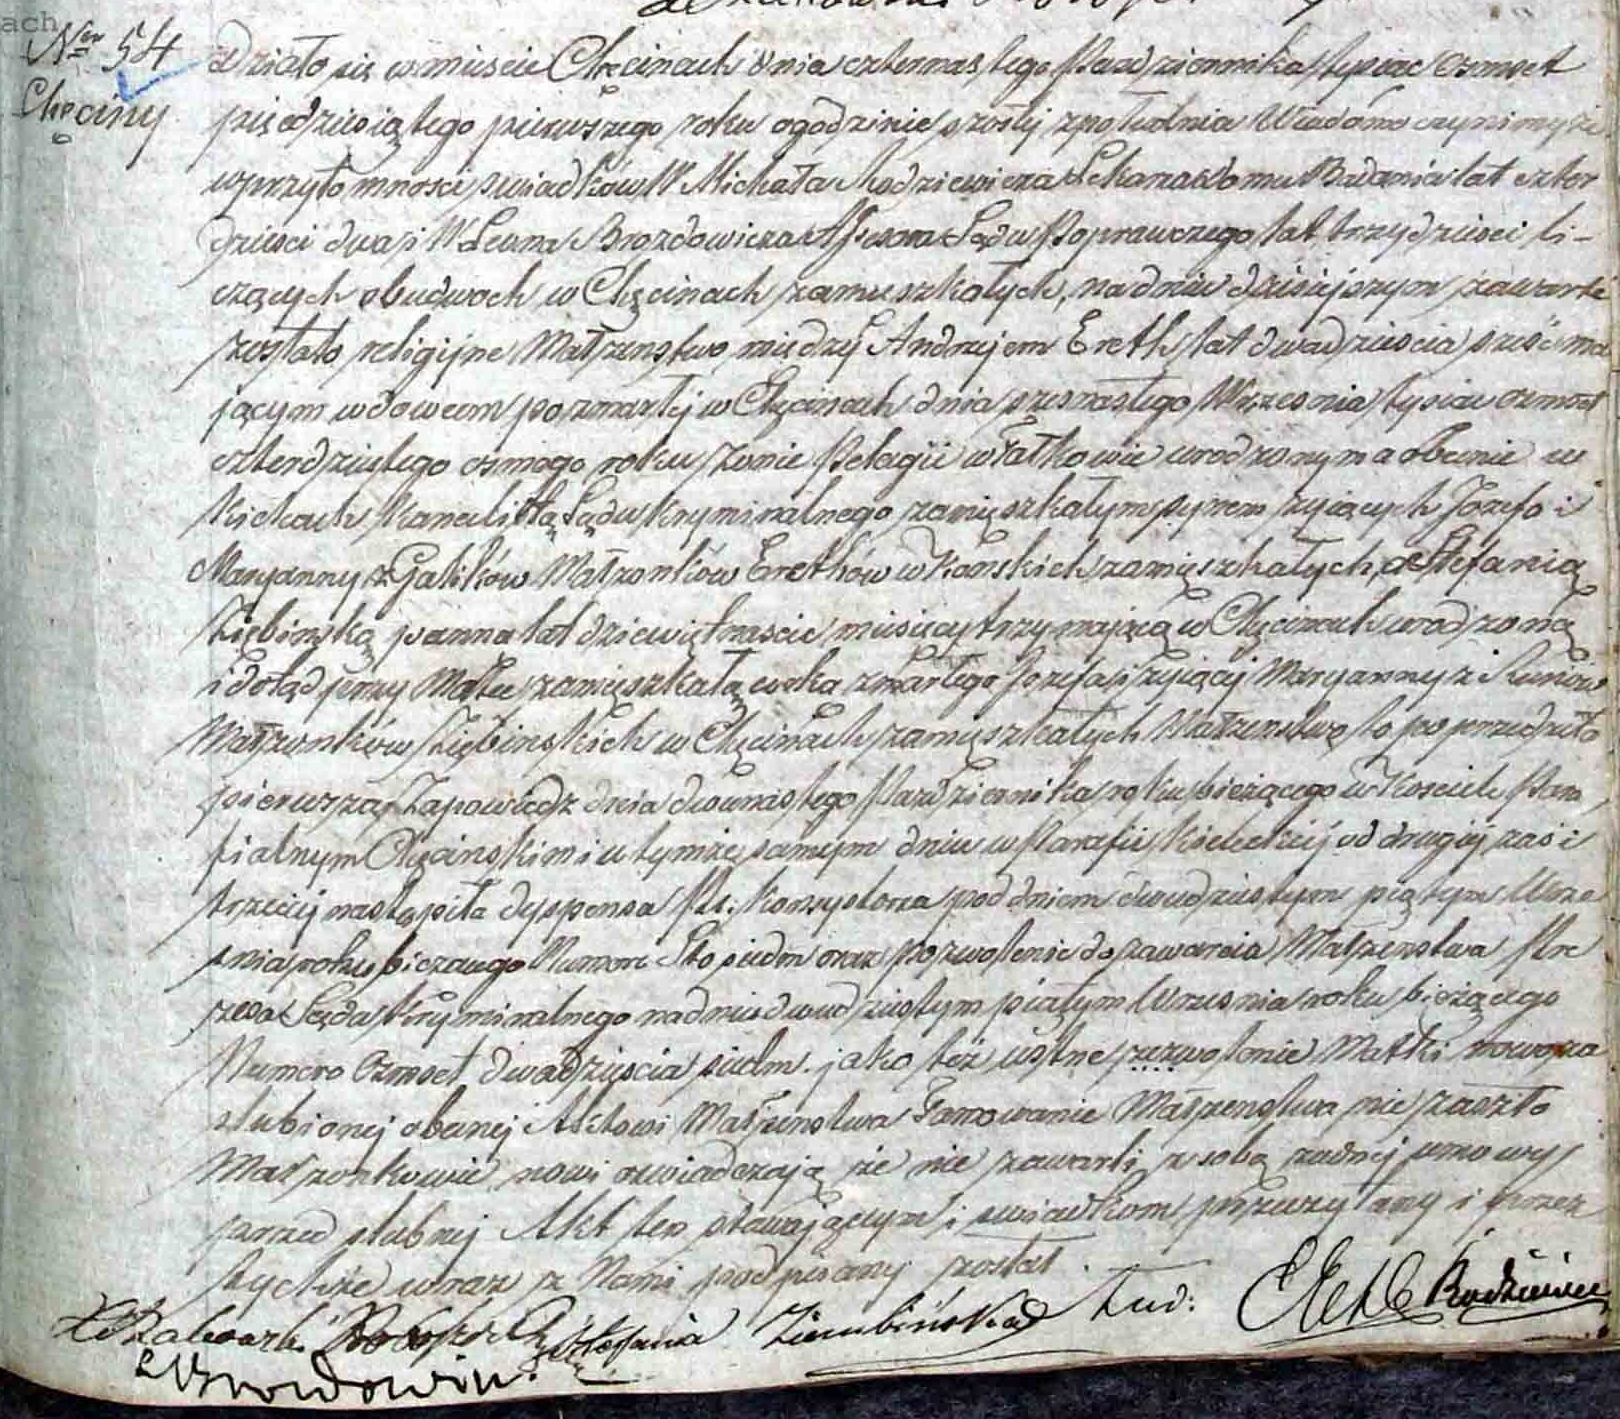 ach
Nro 54
Chęciny
Działo się w mieście Chęcinach dnia czternastego Października tysiąc osmset
pięcdziesiątego pierwszego roku o godzinie szostej z południa Wiadomo czyniemy że
w przytomnosci swiadków W Michała Rodziewicza Lekarza Domu Badania lat czter
dziesci dwa i W Leona Brozdowicza Assesora Sądu Poprawczego lat trzydziesci li-
czących obudwoch w Chęcinach zamieszkałych, na dniu dzisiejszym zawarte
zostało religijne Małżenstwo między Andrzejem Ereth lat dwadziescia szesć ma
jącym wdowcem po zmarłej w Chęcinach dnia szesnastego Wrzesnia tysiąc osmset
czterdziestego osmego roku żonie Pelagii w Fałkowie urodzonym a obecnie w
Kielcach Kancelistą Sądu Kryminalnego zamięszkałym synem żyjących Józefa i
Maryanny z Galików Małżonków Erethów w Końskich zamięszkałych, a Stefanią
Ziębinską panną lat dziewiętnascie miesięcy trzy mającą w Chęcinach urodzoną
i dotąd przy Matce zamięszkałą córką zmarłego Józefa i żyjącej Maryanny z
Małżonków Ziębinskich w Chęcinach zamięszkałych Małżenstwo to poprzedziła
pierwsza Zapowiedz dnia dwunastego Pazdziernika roku bieżącego w Kosciele Para
fialnym Chęcinskim i w tymże samym dniu w Parafii Kieleckiej od drugiej zaś i
trzeciej nastąpiła dyspensa Ks: Konsystorza pod dniem dwudziestym piątym Wrze
snia roku bieżącego Numero Sto siedm oraz pozwolenie do zawarcia Małżenstwa Pre
zesa Sądu Kryminalnego na dniu dwudziestym piątym Wrzesnia roku bieżącego
Numero Osmset dwadziescia siedm. jako też ustne zezwolenie Matki nowo za
slubionej obecnej Aktowi Małżenstwa Tamowanie Małżenstwa nie zaszło
Małżonkowie nowi oswiadczają że nie zawarli z sobą żadnej umowy
przed slubnej Akt ten stawającym i swiadkom przeczytany i przez
tychże wraz z Nami podpisany został.
Stefania Ziembińska And: Ereth Rodziewicz